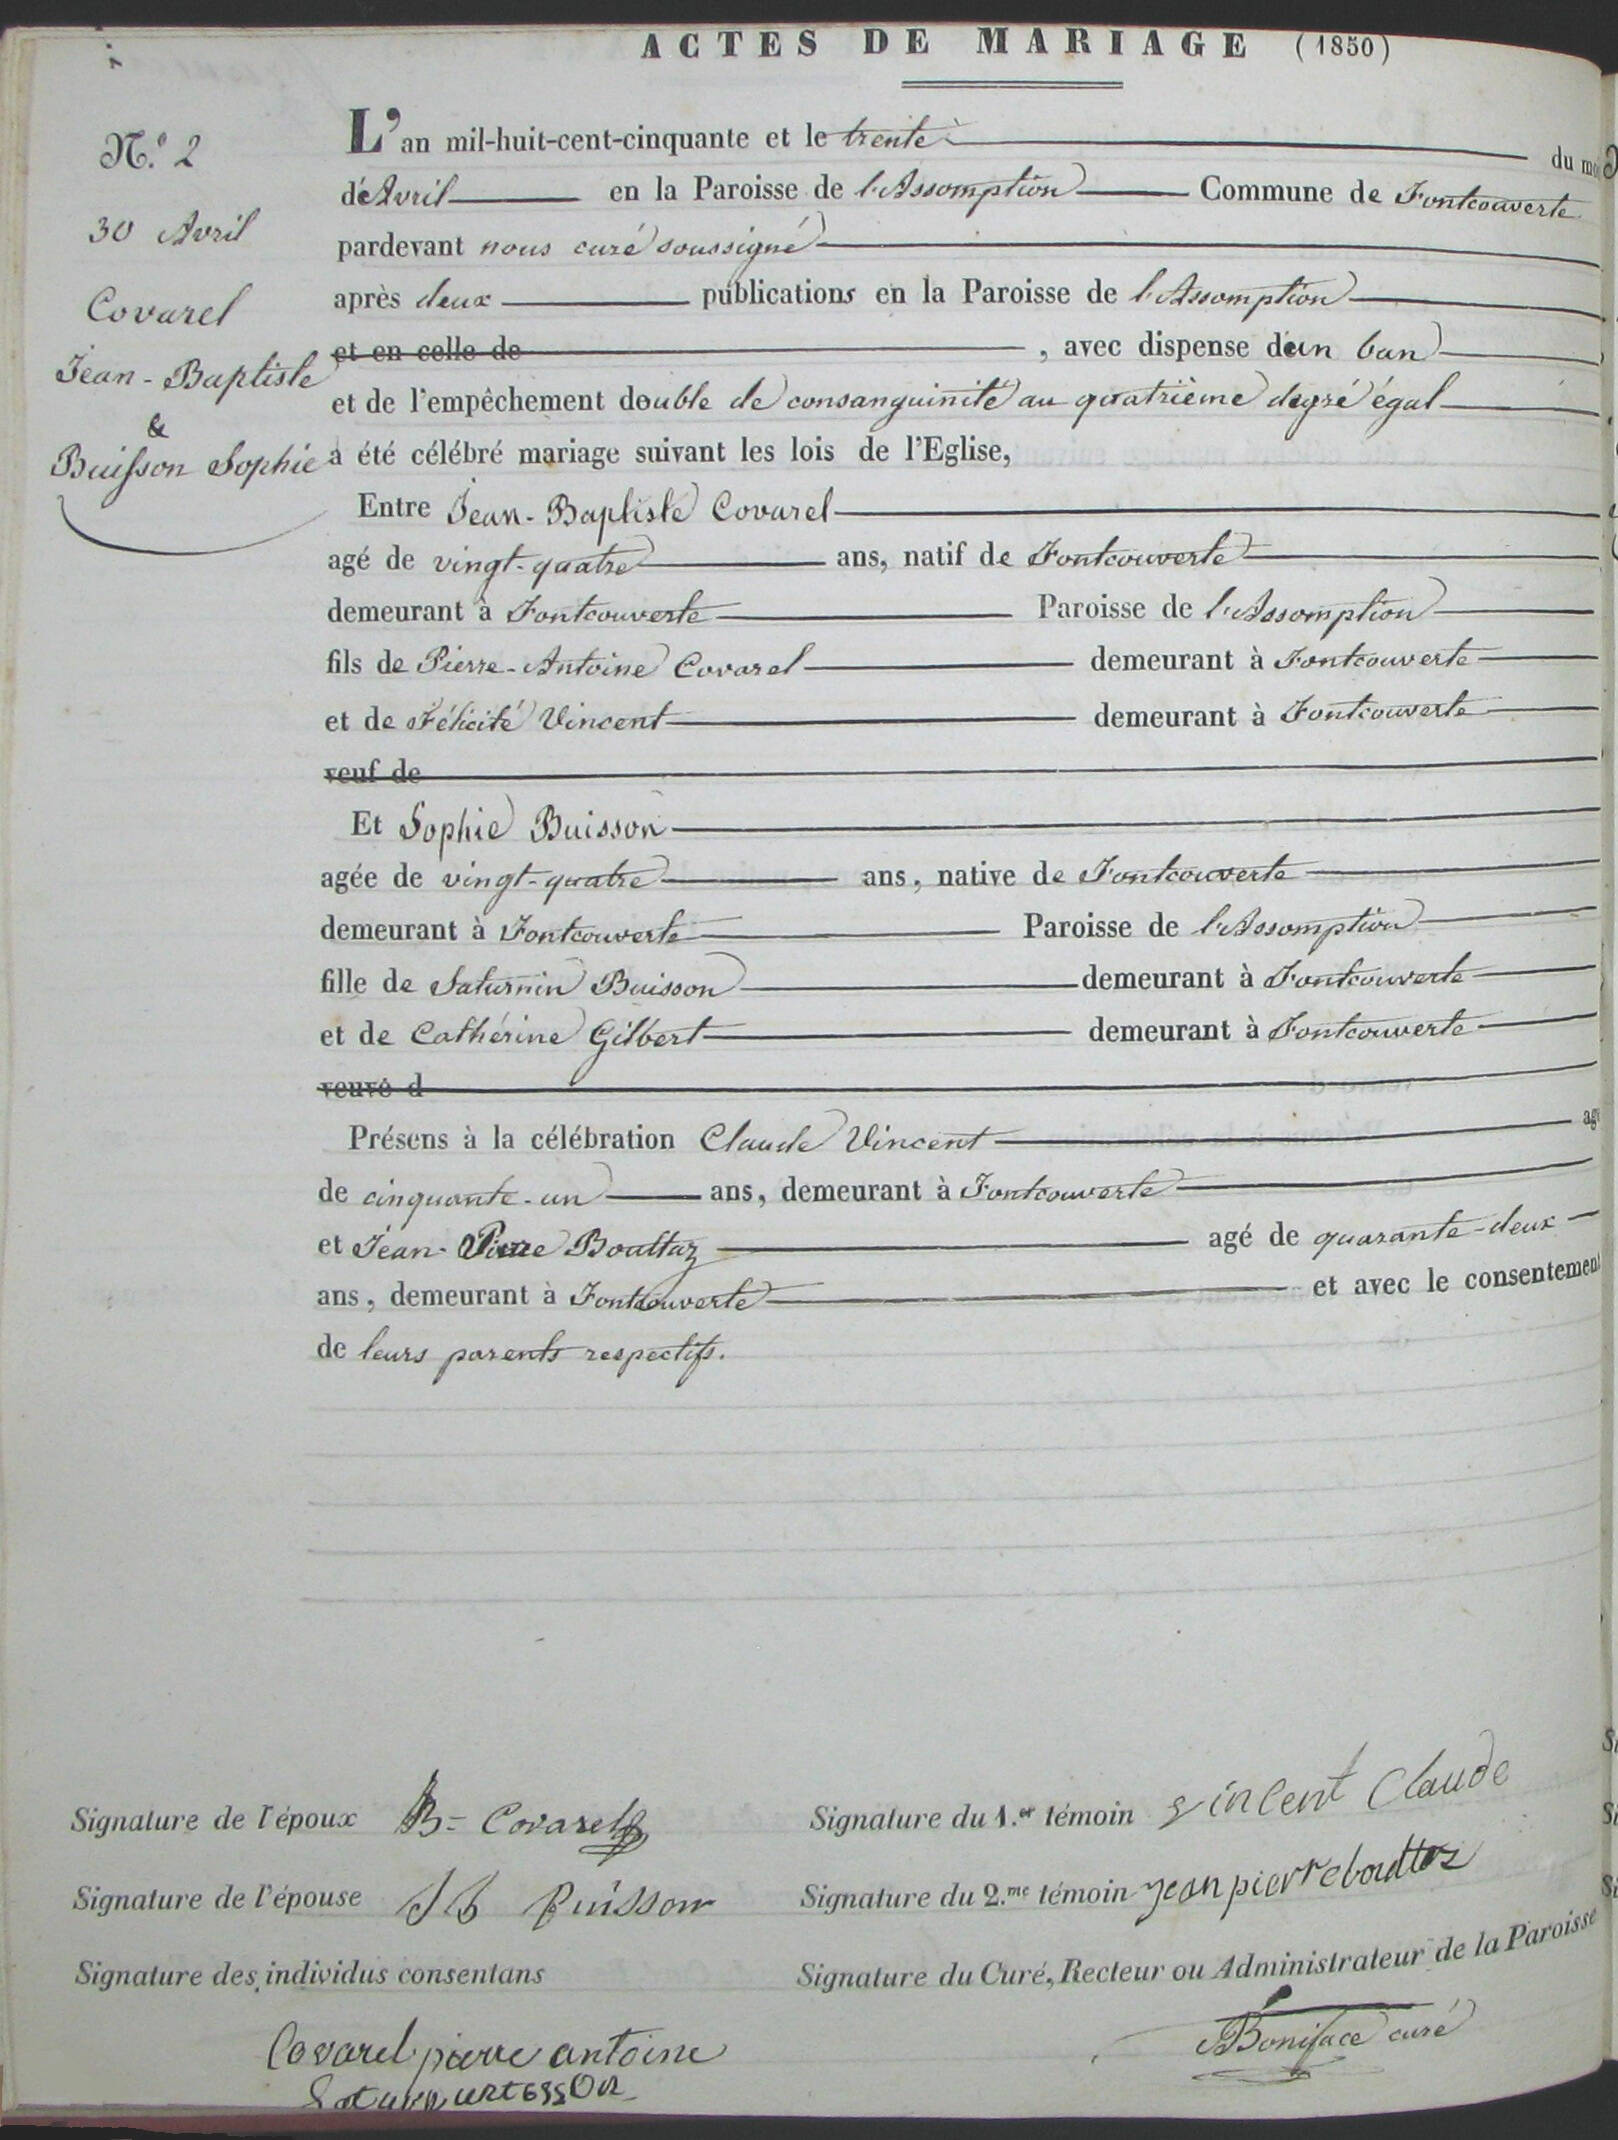 ACTES DE MARIAGE (1850)
N.º 2
30 Avril
Covarel
Jean-Baptiste
&
Buisson Sophie
L'an mil-huit-cent-cinquante et le trente du moi
d'Avril en la Paroisse de l'Assomption Commune de Fontcouverte
pardevant nous curé soussigné
après deux publications en la Paroisse de l'Assomption
et en celle de , avec dispense d'un ban
et de l'empêchement double de consanguinité au quatrième degré égal
a été célébré mariage suivant les lois de l'Eglise,
Entre Jean-Baptiste Covarel
agé de vingt-quatre ans, natif de Fontcouverte
demeurant à Fontcouverte Paroisse de l'Assomption
fils de Pierre-Antoine Covarel demeurant à Fontcouverte
et de Félicité Vincent demeurant à Fontcouverte
veuf de
Et Sophie Buisson
agée de vingt-quatre ans, native de Fontcouverte
demeurant à Fontcouverte Paroisse de l'Assomption
fille de Saturnin Buisson demeurant à Fontcouverte
et de Cathérine Gilbert demeurant à Fontcouverte
veuve d
Présens à la célébration Claude Vincent agé
de cinquante-un ans, demeurant à Fontcouverte
et Jean-Pierre Bouttaz agé de quarante-deux
ans, demeurant à Fontcouverte et avec le consentement
de leurs parents respectifs.
Signature de l'époux B= Covarel
Signature du 1.er témoin vincent Claude
Signature de l'épouse Buisson
Signature du 2.me témoin jean pierre bouttaz
Signature des individus consentans
Signature du Curé, Recteur ou Administrateur de la Paroisse
Covarel pierre antoine
Boniface curé